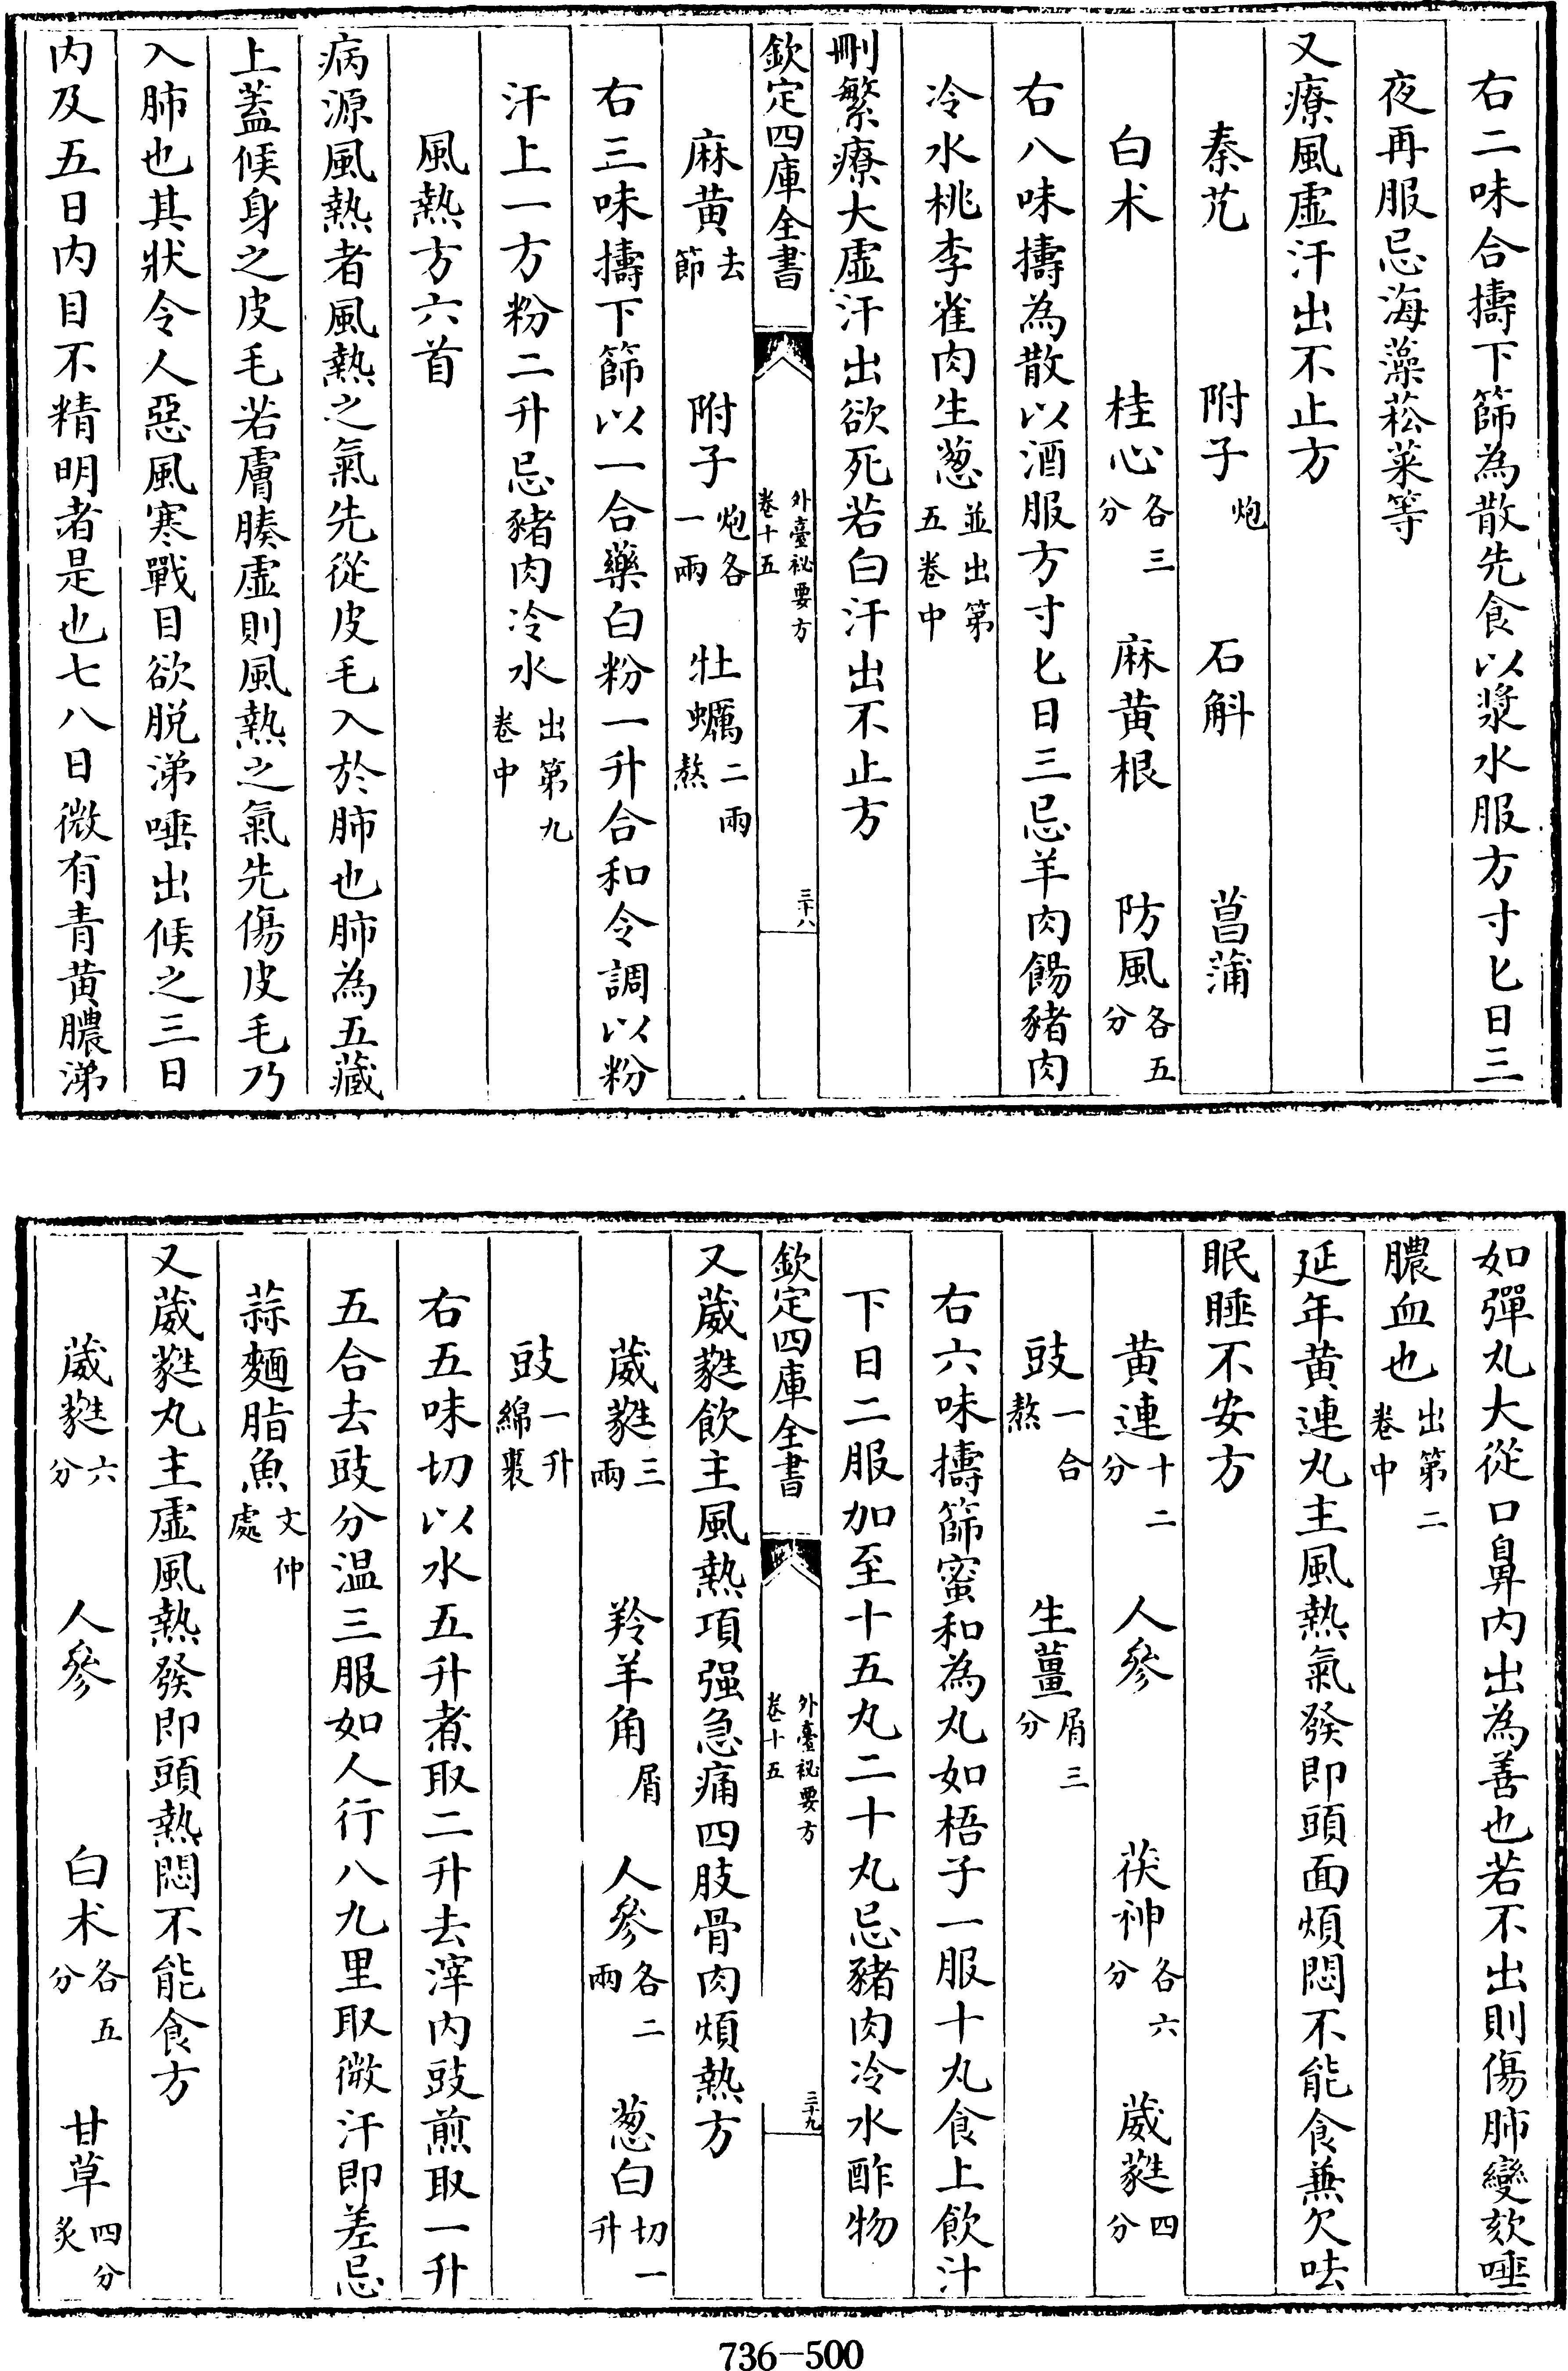 右二味合擣下篩為散先食以漿水服方寸匕日三
夜再服忌海藻菘菜等
又療風虛汗出不止方
秦艽 附子炮 石斛 菖蒲
白术 桂心各三分 麻黄根 防風各五分
右八味擣為散以酒服方寸匕日三忌羊肉餳豬肉
冷水桃李雀肉生葱並出第五卷中
刪繁療大虛汗出欲死若白汗出不止方
欽定四庫全書 外臺祕要方卷十五 三十八
麻黄去節 附子炮各一兩 牡蠣二兩熬
右三味擣下篩以一合藥白粉一升合和令調以粉
汗上一方粉二升忌豬肉冷水出第九卷中
風熱方六首
病源風熱者風熱之氣先從皮毛入於肺也肺為五藏
上蓋候身之皮毛若膚腠虛則風熱之氣先傷皮毛乃
入肺也其狀令人惡風寒戰目欲脱涕唾出候之三日
内及五日内目不精明者是也七八日微有青黄膿涕
如彈丸大從口鼻内出為善也若不出則傷肺變欬唾
膿血也出第二卷中
延年黄連丸主風熱氣發即頭面煩悶不能食兼欠呿
眠睡不安方
黄連十二分 人參 茯神各六分 葳蕤四分
豉一合熬 生薑屑三分
右六味擣篩蜜和為丸如梧子一服十丸食上飲汁
下日二服加至十五丸二十丸忌豬肉冷水酢物
欽定四庫全書 外臺祕要方卷十五 三十九
又葳蕤飲主風熱項强急痛四肢骨肉煩熱方
葳蕤三兩 羚羊角屑 人參各二兩 葱白切一升
豉一升綿裹
右五味切以水五升煮取二升去滓内豉煎取一升
五合去豉分温三服如人行八九里取微汗即差忌
蒜麵脂魚文仲處
又葳蕤丸主虛風熱發即頭熱悶不能食方
葳蕤六分 人參 白术各五分 甘草四分炙
736-500